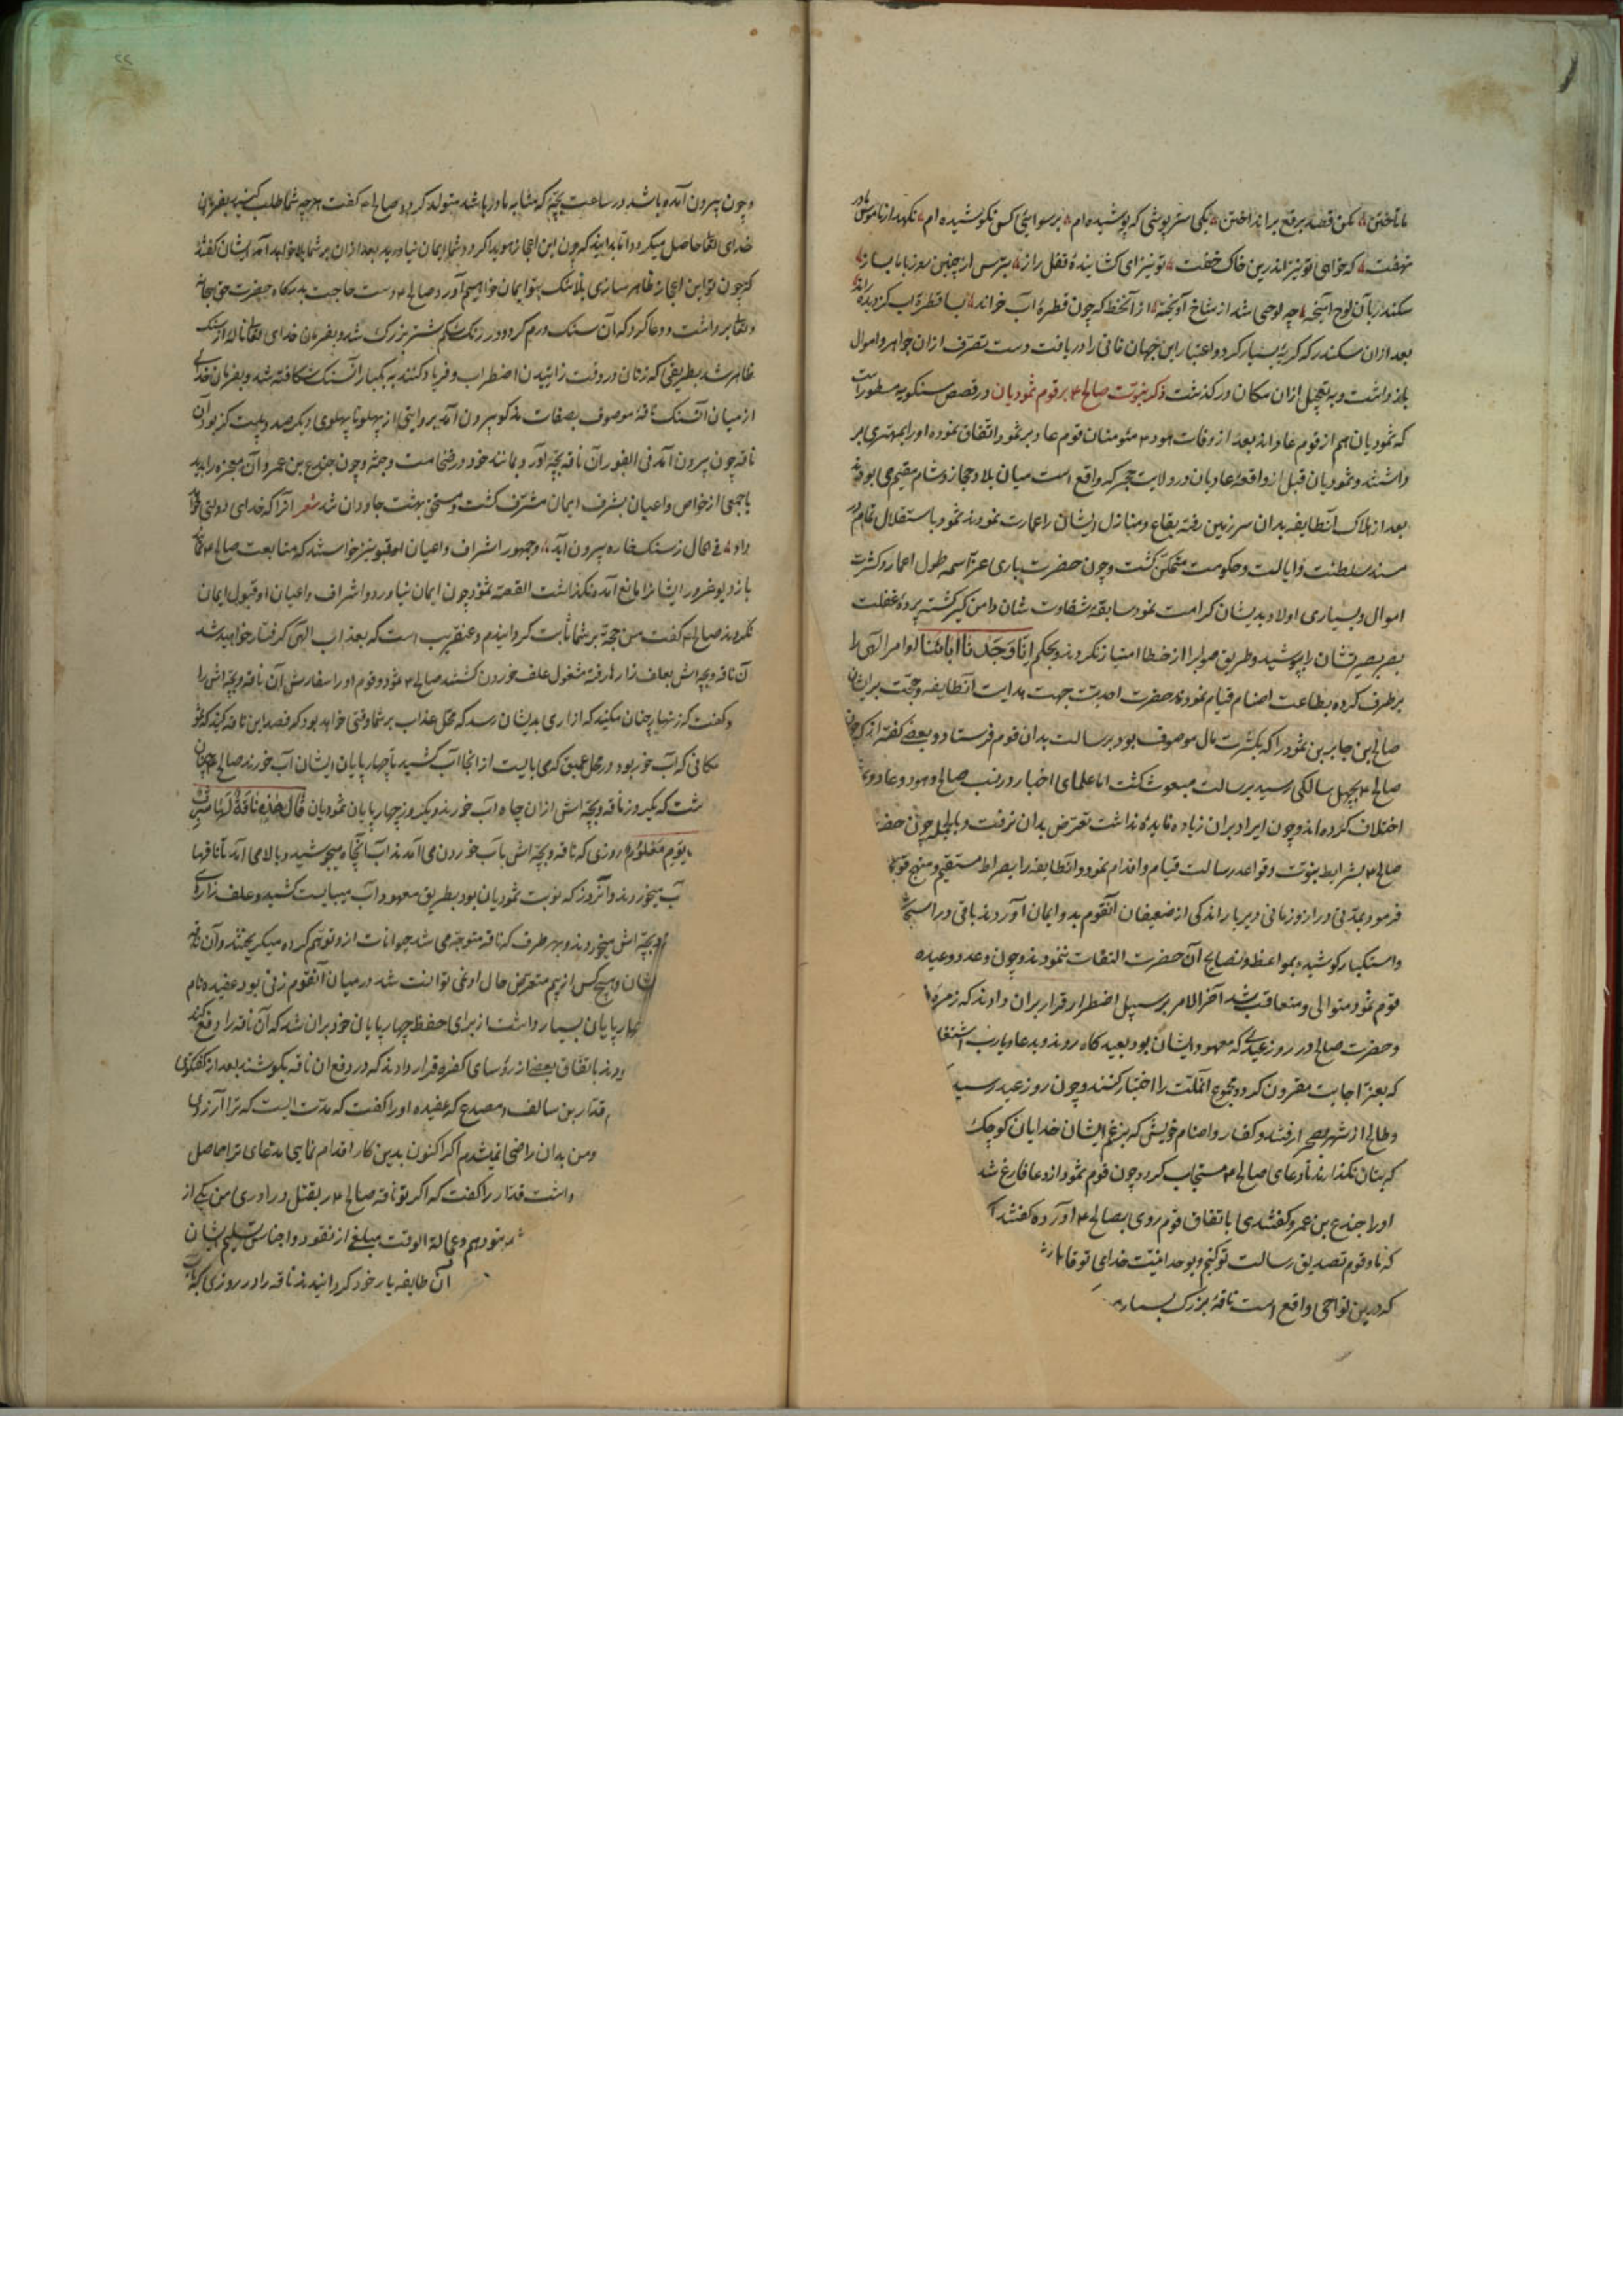 ما تاختن مکن قصد برقع برانداختن یکی ستر پوشی که پوشیده ام برسوایئ کس نکوشیده ام نکهدار ناموس ما در
نهفت که خواهی تو نیز اندرین خاک خفت تو نیز ای کشایندهٔ قفل راز بترس از چنین روز با ما بساز
سکندر بآن لوح آمیخته چه لوحی شد از شاخ آویخته از آنخط که چون قطرهٔ آب خواند بسا قطرهٔ آب کز دیده راند
بعد ازان سکندر که کریهٔ بسیار کرد و اعتبار این جهان فانی را دریافت دست تصرف ازان جواهر و اموال
باز داشت و به تعجیل ازان مکان در کذشت ذکر نبوت صالح ع م بر قوم ثمودیان در قصص مسطور است
که ثمودیان هم از قوم عاد اند بعد از وفات هود ع م مؤمنان قوم عاد بر ثمود اتفاق نموده او را بمهتری بر
داشتند و ثمودیان قبل از واقعهٔ عادیان در ولایت حجر که واقع است میان بلاد حجاز و شام مقیم می بودند
بعد از هلاک آنطایفه بدان سرزمین رفته بقاع و منازل ایشان را عمارت نمودند ثمود باستقلال تمام در
مسند سلطنت و ایالت و حکومت متمکن کشت و چون حضرت باری عز اسمه طول اعمار و کثرت
اموال و بسیاری اولاد بدیشان کرامت نمود سابقهٔ شقاوت شان دامن کیر کشته پردهٔ غفلت
بصر بصیرتشان را پوشید و طریق صواب را از خطا امتیاز نکردند و بحکم اِنّا وَجَدْنا آباءَنا اوامر الهی را
بر طرف کرده بطاعت اصنام قیام نمودند حضرت احدیت جهت هدایت آنطایفه و حجت بر ایشان
صالح بن جابر بن ثمود را که بکثرت مال موصوف بود برسالت بدان قوم فرستاد و بعضی کفته اند که چون
صالح ع م بچهل سالکی رسید برسالت مبعوث کشت اما علمای اخبار در نسب صالح و هود و عاد و
اختلاف کرده اند و چون ایراد بران زیاده فایدهٔ نداشت تعرض بدان نرفت و بالجمله چون حضر
صالح ع م بشرایط نبوت و قواعد رسالت قیام و اقدام نمود و آنطایفه را بصراط مستقیم و منهج
فرمود بمدتی دراز و زمانی دیریاز اندکی از ضعیفان آنقوم بدو ایمان آوردند باقی در
و استکبار کوشیده بمواعظ و نصایح آن حضرت التفات ننمودند و چون وعد و وعید
قوم ثمود متوالی و متعاقب شد آخر الامر بر سبیل اضطرار قرار بران دادند که زمره
و حضرت صالح در روز عیدی که معهود ایشان بود بعید کاه روند و بدعا و یا رب
که بعز اجابت مقرون کردد مجموع آنملت را اختیار کنند و چون روز عید رسید
و صالح از شهر بصحرا رفتند و کفار و اصنام خویش که بزعم ایشان خدایان کوچک
که بتان نکذارند تا دعای صالح ع م مستجاب کردد چون قوم ثمود از دعا فارغ شد
او را جندع بن عمرو کفتندی باتفاق قوم روی بصالح ع م آورده کفتند
که ما و قوم تصدیق رسالت تو کنیم و بوحدانیت خدای تو قایل
که درین نواحی واقع است ناقهٔ بزرک بسیار
۲۲
و چون بیرون آمده باشد در ساعت بچهٔ که مشابه مادر باشد متولد کردد صالح ع م کفت هر چه شما طلب کنید بفرمان
خدای تعالی حاصل میکردد اما بدانید که چون این اعجاز هویدا کردد و شما ایمان نیاورید بعد ازان بر شما بلا خواهد آمد ایشان کفتند
که چون تو این اعجاز ظاهر سازی بلا شک بتو ایمان خواهیم آورد صالح ع م دست حاجت بدرکاه حضرت حق سبحانه
و تعالی برداشت و دعا کرد که آن سنک ورم کرد و در رنک شکم شتر بزرک شد و بفرمان خدای تعالی ناله از سنک
ظاهر شد بطریقی که زنان در وقت زاییدن اضطراب و فریاد کنند به یکبار آنسنک شکافته شد و بفرمان خدای
از میان آنسنک ناقهٔ موصوف بصفات مذکور بیرون آمد بروایتی از پهلو تا پهلوی دیکر صد و بیست کز بود آن
ناقه چون بیرون آمد فی الفور آن ناقه بچهٔ آورد مانند خود در ضخامت و جثه و چون جندع بن عمرو آن معجزه را بدید
با جمعی از خواص و اعیان بشرف ایمان مشرف کشت و مستحق بهشت جاودان شد شعر آنرا که خدای دولتی خواهد
داد فی الحال ز سنک خاره بیرون آید و جمهور اشراف و اعیان او قبول نیز خواستند که متابعت صالح ع م نمایند
باز دیو غرور ایشانرا مانع آمد و نکذاشت القصه ثمود چون ایمان نیاورد و اشراف و اعیان او قبول ایمان
نکردند صالح ع م کفت من حجة بر شما ثابت کردانیدم و عنقریب است که بعذاب الهی کرفتار خواهید شد
آن ناقه و بچه اش بعلف زار ها رفته مشغول علف خوردن کشتند صالح ع م ثمود و قوم او را سفارش آن ناقه و بچه اش را
و کفت که زنهار چنان میکنید که ازاری بدیشان رسد که محل عذاب بر شما وقتی خواهد بود که قصد این ناقه کنید که
مکانی که آب خور بود در محل عمیق که می بایست از انجا آب کشید تا چهار پایان ایشان آب خورند صالح ع م چنان
شت که یکروز ناقه و بچه اش ازان چاه آب خورند و یکروز چهار پایان ثمودیان قالَ هٰذِهِ ناقَةٌ لَها شِرْبٌ
یَوْمٍ مَعْلُومٍ روزی که ناقه و بچه اش بآب خوردن می آمدند آب آنچاه میجوشید و بالا می آمد تا ناقها
آب میخوردند و آنروز که نوبت ثمودیان بود بطریق معهود آب میبایست کشید و علف زاری
و بچه اش میخوردند و بهر طرف که ناقه متوجه می شد حیوانات ازو توهم کرده میکریختند و آن ناقه
شان و هیچ کس از بیم متعرض حال او نمی توانست شد در میان آنقوم زنی بود عنیده نام
چهار پایان بسیار داشت از برای حفظ چهار پایان خود بران شد که آن ناقه را دفع کند
ودند باتفاق بعضی از رؤسای کفره قرار دادند که در دفع ان ناقه بکوشند بعد از کفتکوی
قدار بن سالف و مصدع که عنیده او را کفت که مدت است که ترا آرزوی
ومن بدان راضی نمیشدم اکر اکنون بدین کار اقدام نمایی مدعای ترا حاصل
داشت قدار را کفت که اکر تو ناقه صالح ع م را بقتل در آوری من یکی از
بتو دهم و عجالة الوقت مبلغی از نقود و اجناس تسلیم ایشان
آن طایفه یار خود کردانیدند ناقه را در روزی که